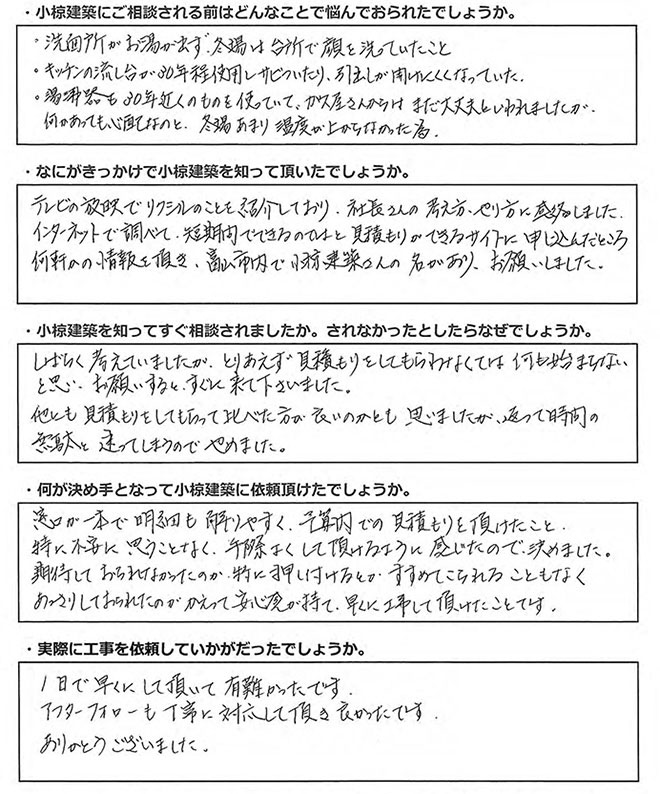 ・小椋建築にご相談される前はどんなことで悩んでおられたでしょうか。
・洗面所がお湯が出ず、冬場は台所で顔を洗っていたこと
・キッチンの流し台が30年程使用しサビついたり、引出しが開けにくくなっていた。
・湯沸器も30年近くのものを使っていて、ガス屋さんからは まだ大丈夫といわれましたが、
何かあっても心配なのと、冬場あまり温度が上がらなかった為。
・なにがきっかけで小椋建築を知って頂いたでしょうか。
テレビの放映でリクシルのことを紹介しており、社長さんの考え方、やり方に感銘しました。
インターネットで調べて、短期内でできるのではと見積もりができるサイトに申し込んだところ
何軒かの情報を頂き、富山市内で小椋建築さんの名があり、お願いしました。
・小椋建築を知ってすぐ相談されましたか。されなかったとしたらなぜでしょうか。
しばらく考えていましたが、とりあえず見積もりをしてもらわなくては何も始まらない
と思い、お願いすると、すぐに来て下さいました。
他にも見積もりをしてもらって比べた方が良いのかとも思いましたが、返って時間の
無駄と迷ってしまうのでやめました。
・何が決め手となって小椋建築に依頼頂けたでしょうか。
窓口が一本で明細も解りやすく、予算内での見積もりを頂けたこと、
特に不安に思うことなく、手際よくして頂けるように感じたので決めました。
期待しておられなかったのか、特に押し付けるとか すすめてこられることもなく
あっさりしておられたのがかえって安心感が持て、早くに工事して頂けたことです。
・実際に工事を依頼していかがだったでしょうか。
1日で早くにして頂いて有難かったです。
アフターフォローも丁寧に対応して頂き良かったです。
ありがとうございました。